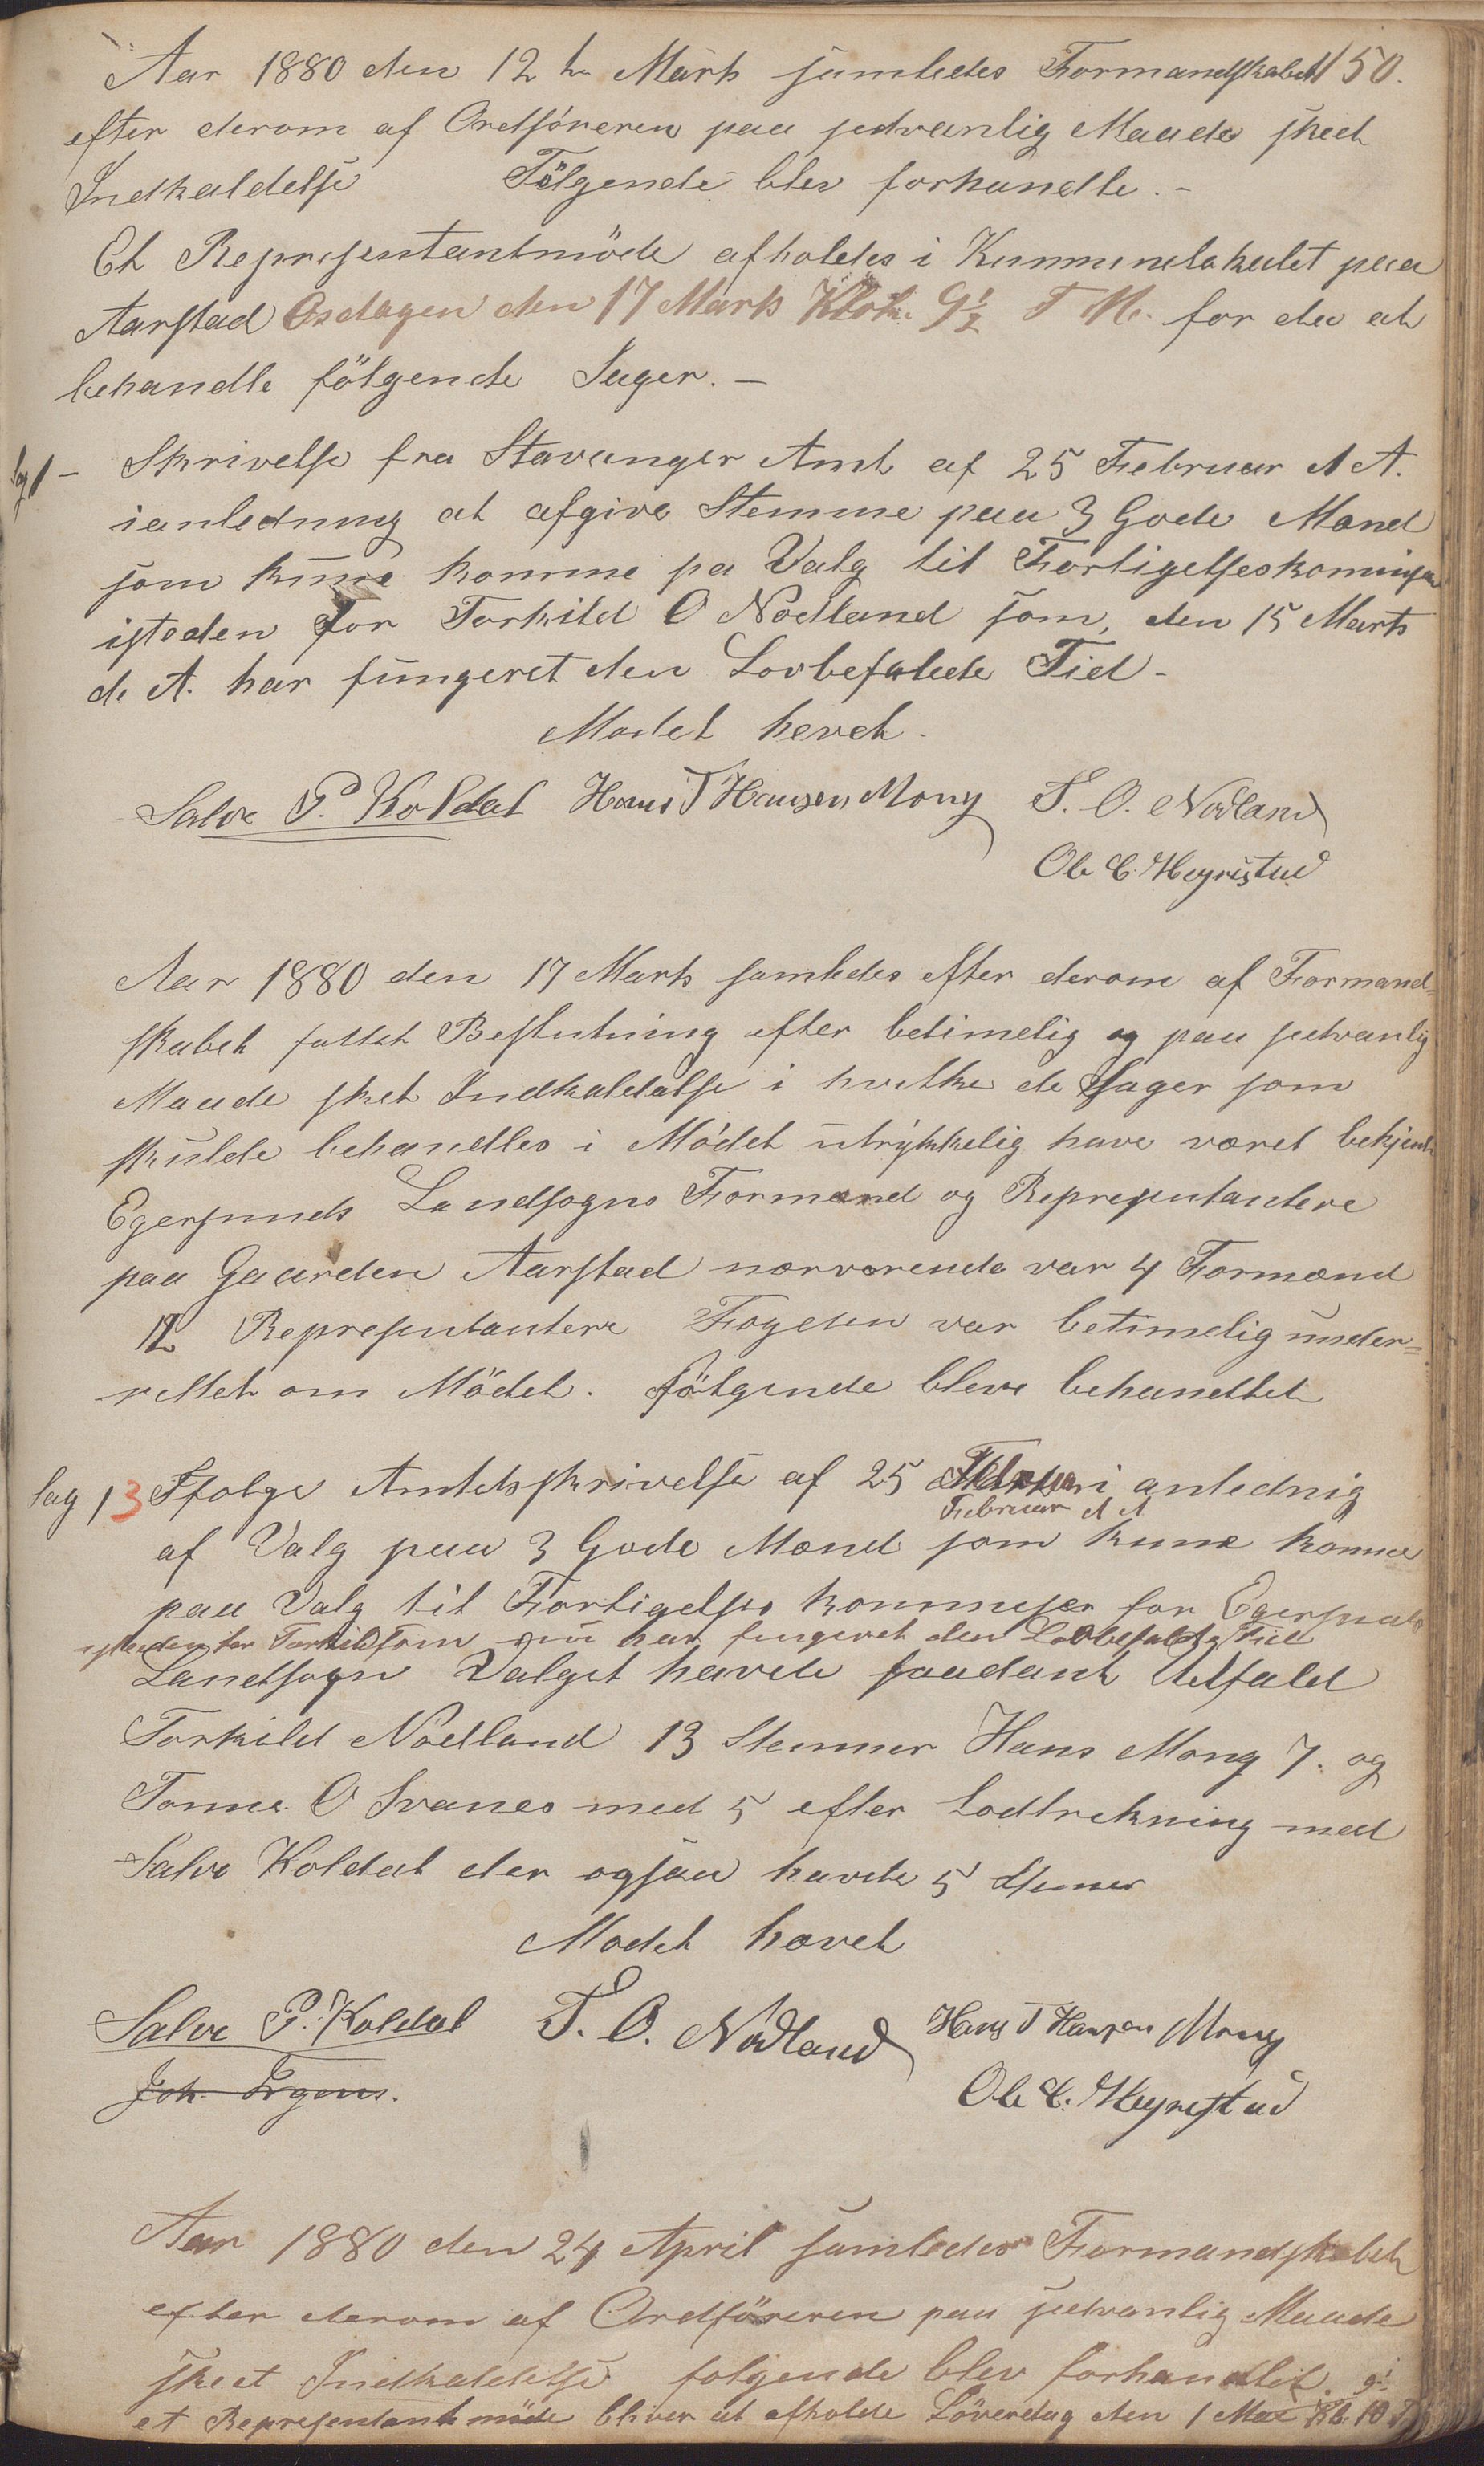 150.
Aar 1880 den 12te Marts samledes Formandskabet
efter derom af Ordföreren paa sedvanlig Maade skeet
Indkaldelse Fölgende blev forhandle. -
Et Representantmöde afholdes i Kummunelokalet paa
Aarstad Onsdagen den 17 Marts Klok. 9½ F M. for der at
behandle fölgende Sager. -
Sag 1 - Skrivelse fra Stavanger Amt af 25 Februar d A.
ianledning at afgive Stemme paa 3 Gode Mænd
som kune komme pa Valg til Forligelseskomisjon
isteden for Torkild O Nodland som, den 15 Marts
d. A. har fungeret den Lovbefalede Tied -
Modet hevet.
Salve P. Koldal Hans T Hansen Mong T. O. Nodland
Ole C. Høyrestad
Aar 1880 den 17 Marts samledes efter derom af Formand-
skabet fattet Beslutning efter betimelig og paa sedvanlig
Maade sket Indkaldelse i hvilke de Sager som
skulde behandles i Mödet utrykkelig have været bekjent
Egersunds Landsogns Formænd og Representantere
paa Gaarden Aarstad nærværende var 4 Formænd
12 Representantere Fogeden var betimelig under-
rettet om Mödet. fölgende bleve behandlet
Sag 13 Ifölge Amtetsskrivelse af 25 i anlednig
Februar d A
af Valg paa 3 Gode Mænd som kune komme
paa Valg til Forligelses kommisjon for Egersunds
isteden for Torkild som nu har fungeret den Lovbefalede Tied
Landsogn Valget havde saadant Udfald
Torkild Nodland 13 Stemmer Hans Mong 7. og
Tonnes O Svanes med 5 efter Lodtrekning med
Salve Koldal der ogsaa havde 5 Stemmer
Modet hævet
Salve P. Koldal T. O. Nodland Hans T Hansen Mong
Joh. Irgens. Ole C. Høyrestad
Aar 1880 den 24 April samledes Formandskabet
efter derom af Ordföreren paa sedvanlig Maade
skeet Indkaldelse folgende blev forhandlet.
et Representantmöde bliver at afholde Löverdag den 1 Mai Kl. 10